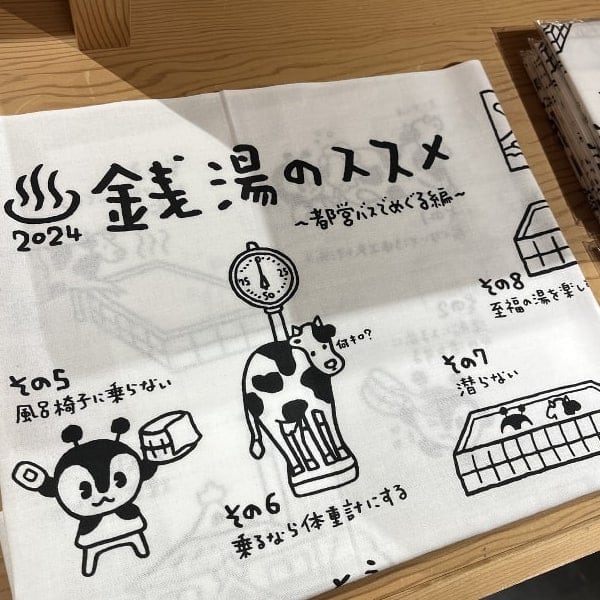 銭湯のススメ
2024
~都営バスでめぐる編~
0
75
25
50
何キロ?
その5
風呂椅子に乗らない
その6
乗るなら体重計にする
その7
潜らない
その8
至福の湯を楽し